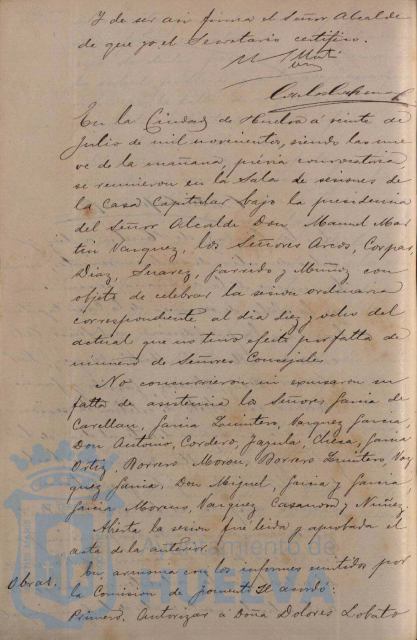 Y de ser asi firma el Señor Alcalde
de que yo el Secretario certifico.
En la Ciudad de Huelva a veinte de
Julio de mil novecientos, siendo las nue
ve de la mañana, prévia convocatoria
se reunieron en la Sala de sesiones de
la Casa Capitular bajo la presidencia
del Señor Alcalde Don Manuel Mar
tin Vazquez, los Señores Arcos, Corpas,
Diaz, Suarez, Garrido y Muñoz con
objeto de celebrar la sesion ordinaria
correspondiente al dia diez y ocho del
actual que no tuvo efecto por falta de
número de Señores Concejales.
No concurrieron ni excusaron su
falta de asistencia los Señores Garcia de
Castellan, Garcia Quintero, Vazquez Garcia,
Don Antonio, Cordero, Jazula, Garcia
Ortiz, Borrero Moron, Borrero Quintero, Vaz
quez Garcia, Don Miguel, Garcia y Garcia,
Garcia Moreno, Vazquez Casanova y Nuñez.
Abierta la sesion fué leida y aprobada el
acta de la anterior.
Obras. En armonia con los informes emitidos por
la Comision de fomento se acordó:
Primero. Autorizar á Doña Dolores Lobato
Ayuntamiento de
HUELVA